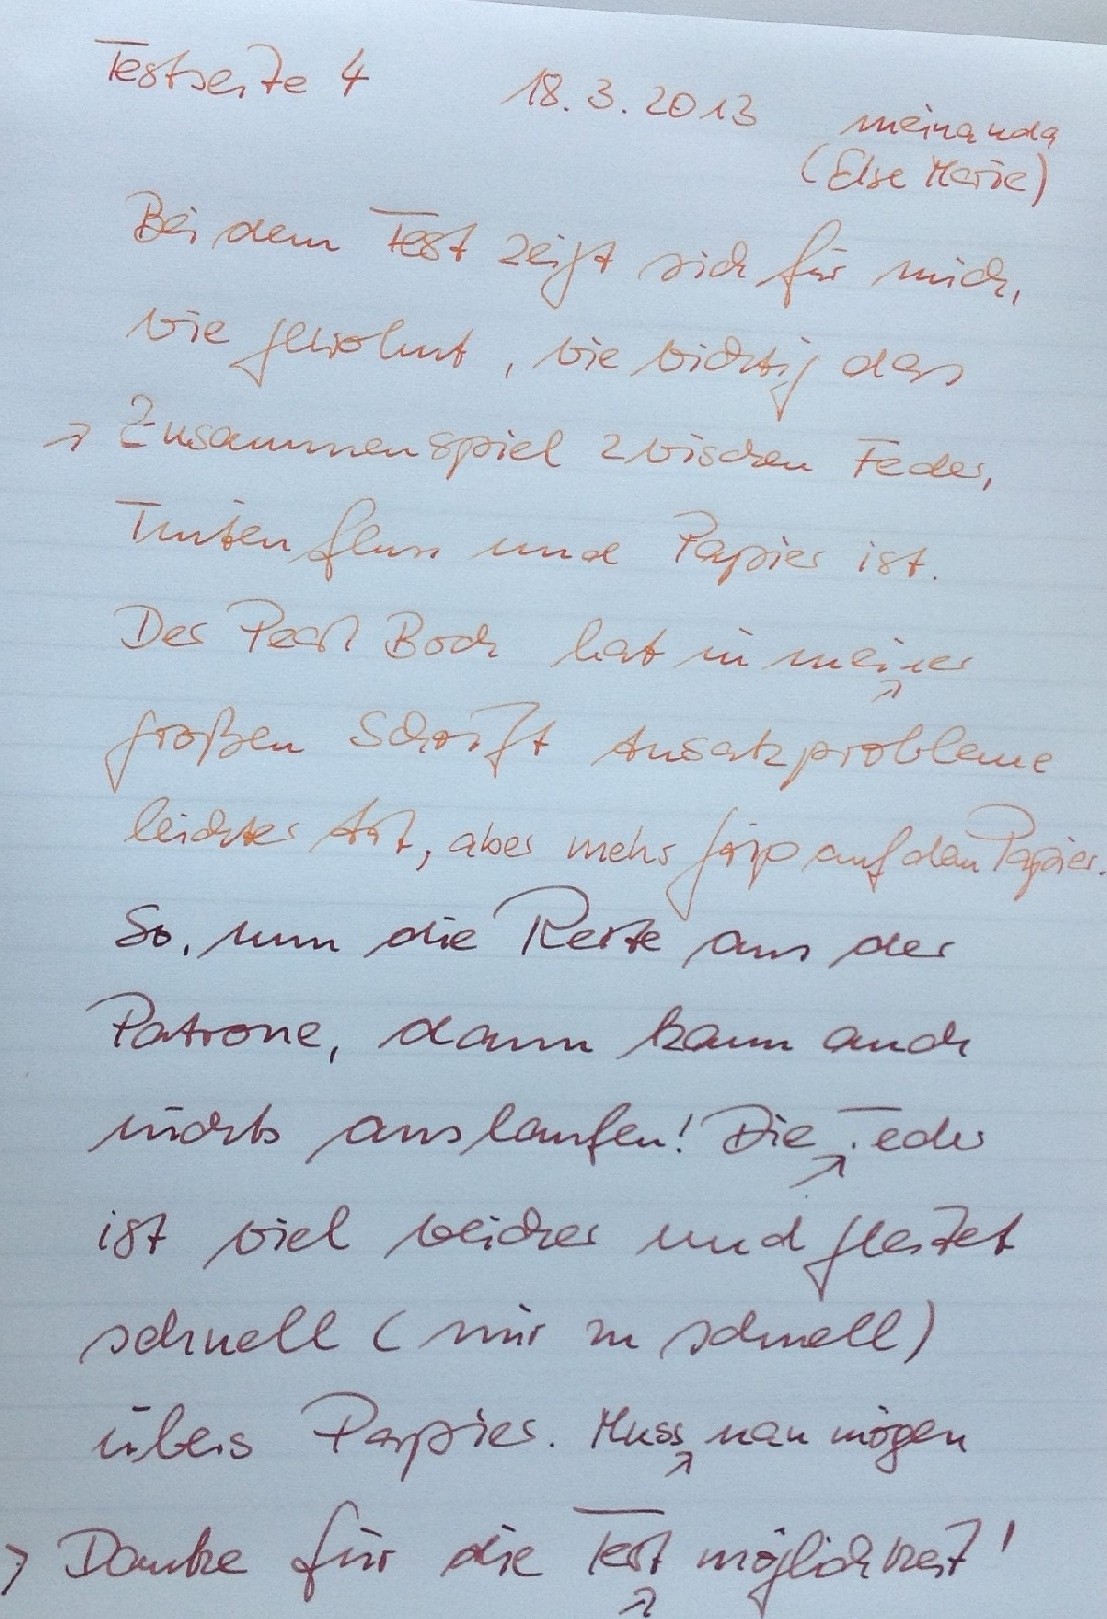 Testseite 4 18.3.2013 meinanda
(Else Marie)
Bei dem Test zeigt sich für mich,
wie gewohnt, wie wichtig das
→ Zusammenspiel zwischen Feder,
Tintenfluss und Papier ist.
Der Pearl Bock hat in meiner
großen Schrift Ansatzprobleme
leichter Art, aber mehr Grip auf dem Papier.
So, nun die Reste aus der
Patrone, dann kann auch
nichts auslaufen! Die Feder
ist viel weicher und gleitet
schnell (mir zu schnell)
übers Papier. Muss man mögen
→ Danke für die Testmöglichkeit!